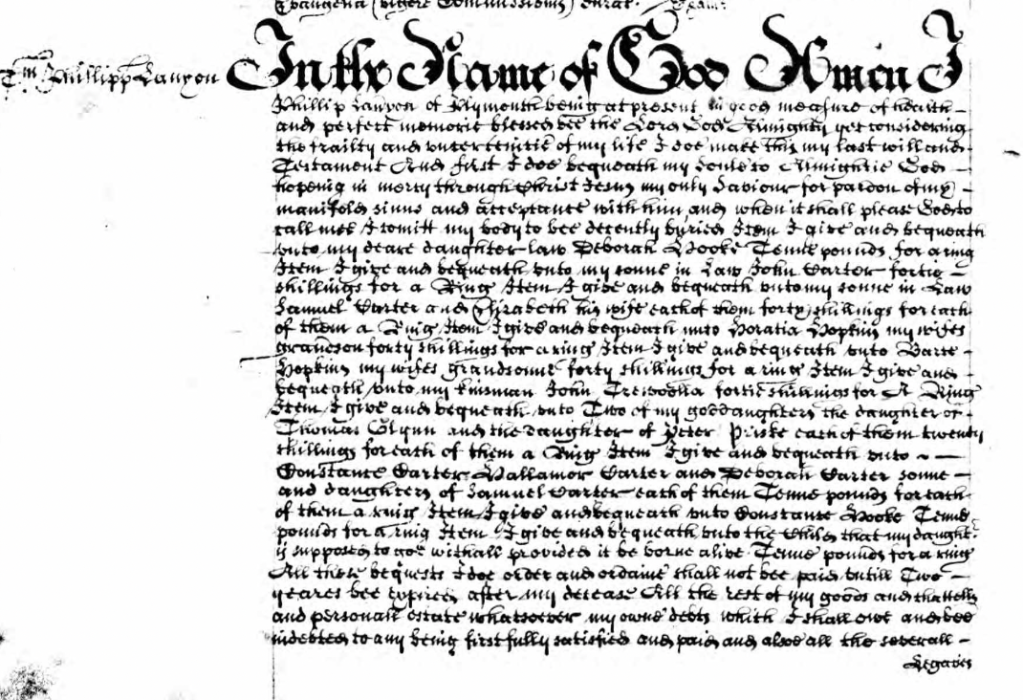 Evangelia (vigore Commissionis) Jurat. Exam:
Tm Phillippi Lanyon In the Name of God Amen I
Phillip Lanyon of Plymouth being at present in good measure of health
and perfect memorie blessed bee the Lord God Almighty yet considering
the frailty and uncerteintie of my life I doe make this my last will and
Testament And first I doe bequeath my soule to Almightie God
hopeing in mercy through Christ Jesus my only Saviour for pardon of my
manifold sinns and acceptance with him and when it shall please God to
call mee I comitt my body to bee decently buried Item I give and bequeath
unto my deare daughter law Deborah Rooke Tenne pounds for a ring
Item I give and bequeath unto my sonne in Law John Carter fortie
shillings for a Ring Item I give and bequeath unto my sonne in Law
Samuel Carter and Elizabeth his wife each of them forty shillings for each
of them a Ring Item I give and bequeath unto Horatia Hopkin my wifes
grandson forty shillings for a ring Item I give and bequeath unto Barte
Hopkins my wifes grandsonne forty shillings for a ring Item I give and
bequeath unto my kinsman John Trewolla fortie shillings for A Ring
Item I give and bequeath unto Two of my goddaughters the daughter of
Thomas Glynn and the daughter of Peter Priske each of them twenty
shillings for each of them a Ring Item I give and bequeath unto
Constance Carter Vallamor Carter and Deborah Carter sonne
and daughters of Samuel Carter each of them Tenne pounds for each
of them a ring Item I give and bequeath unto Constante Rooke Tenne
pounds for a ring Item I give and bequeath unto the Childe that my daught:
is supposed to goe withall provided it be borne alive Tenne pounds for a ring
All these bequests I doe order and ordaine shall not bee paid untill Two
yeares bee expired after my decease All the rest of my goods and chattells
and personall estate whatsoever my owne debts which I shall owe and bee
indebted to any being first fully satisfied and paid and alsoe all the severall
Legacies